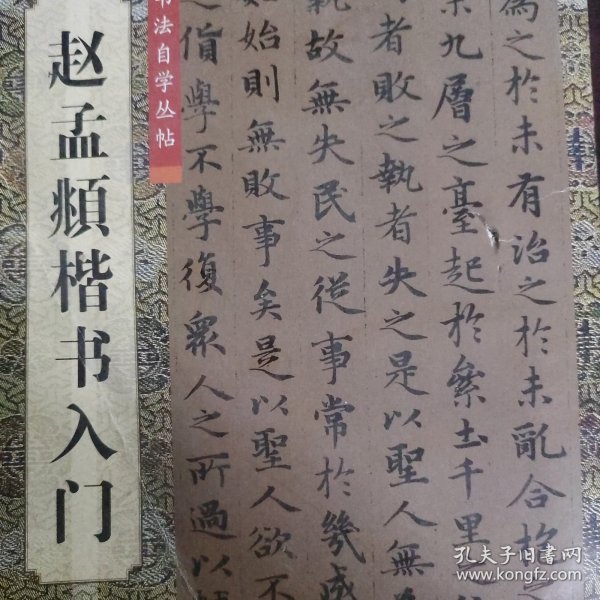 赵孟頫楷书入门
书法自学丛帖
為之於未有治之於未亂合抱之
九層之臺起於絫土千里
者敗之執者失之是以聖人無
執故無失民之從事常於幾成
如始則無敗事矣是以聖人欲不
之貨學不學復眾人之所過以
孔夫子旧书网
www.kongfz.com